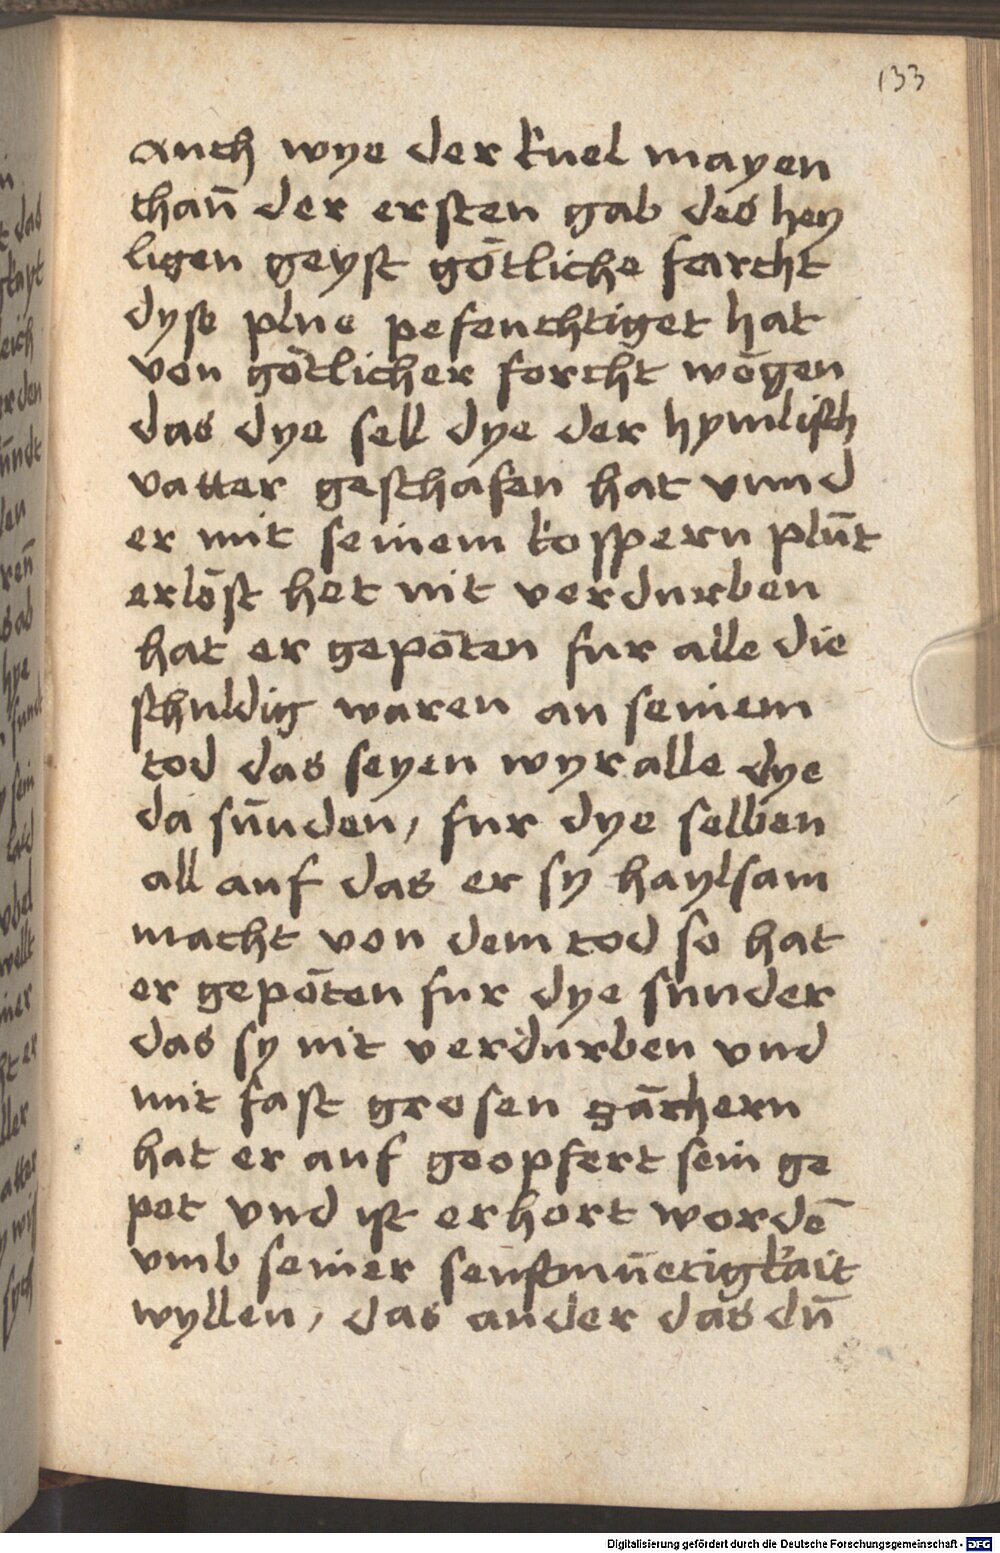 133
auch wye der kuel mayen
than̄ der ersten gab des hey
ligen geyst gŏtliche farcht
dyse plue pefeuchtiget hat
von gŏtlicher forcht wŏgen
das dye sell dye der hymlisch
vatter geschafen hat vnnd
er mit seinem kosspern plūt
erlŏst het nit verdurben
hat er gepŏten fur alle die
schuldig waren an seinem
tod das seyen wyr alle dye
da sūnden, fur dye selben
all auf das er sy haylsam
macht von dem tod so hat
er gepŏten fur dye sunder
das sy nit verdurben vnd
mit fast grosen zāchern
hat er auf geopfert sein ge
pet vnd ist erhort wordē
vmb seiner senftmūetigkait
wyllen, das ander das dū
Digitalisierung gefördert durch die Deutsche Forschungsgemeinschaft - DFG